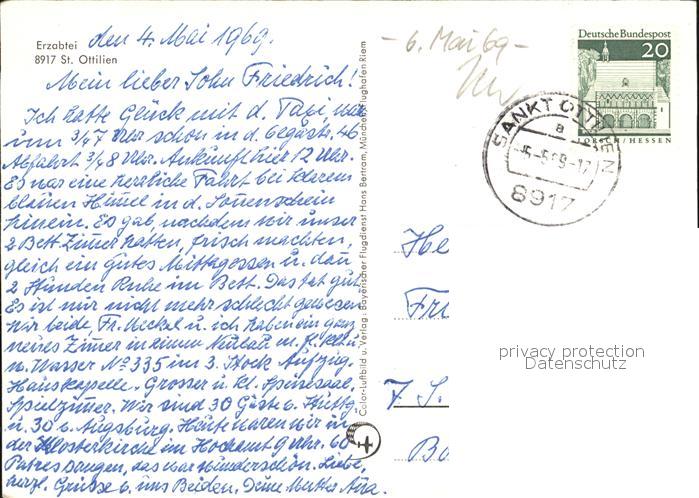 Erzabtei
8917 St. Ottilien
den 4. Mai 1969.
- 6. Mai 69 -
Mein lieber Sohn Friedrich!
Ich hatte Glück mit d. Taxi, war
um 3/47 Uhr schon in d. Legästr. 46
Abfahrt 3/48 Uhr. Ankunft hier 12 Uhr.
Es war eine herrliche Fahrt bei klarem
blauen Himmel in d. Sonnenschein
hinein. Es gab, nachdem wir unser
2 Bett Zimer hatten, frisch machten,
gleich ein gutes Mittagessen u. dan
2 Stunden Ruhe im Bett. Das tat gut
Es ist mir nicht mehr schlecht gewesen
Wir beide, Fr. u. ich haben ein ganz
neues Zimer in einem Neubau m. fl. kalt. u.
w. Wasser No 335 im 3. Stock Aufzug.
Hauskapelle. Grosser u. kl. Speisesaal,
Spielzimer. Wir sind 30 Gäste v. Stuttg
u. 30 v. Augsburg. Heute waren wir in
der Klosterkirche im Hochamt 9 Uhr. 60
Patres sangen, das war wunderschön. Liebe,
herzl. Grüsse v. uns Beiden, Deine Mutter
Color-Luftbild u. Verlag: Bayerischer Flugdienst Hans Bertram, München, Flughafen Riem
Deutsche Bundespost
20
LORSCH / HESSEN
SANKT OTTILIEN
a
-5.-5.69-17
8917
He
Fri
7 S.
Bo
privacy protection
Datenschutz